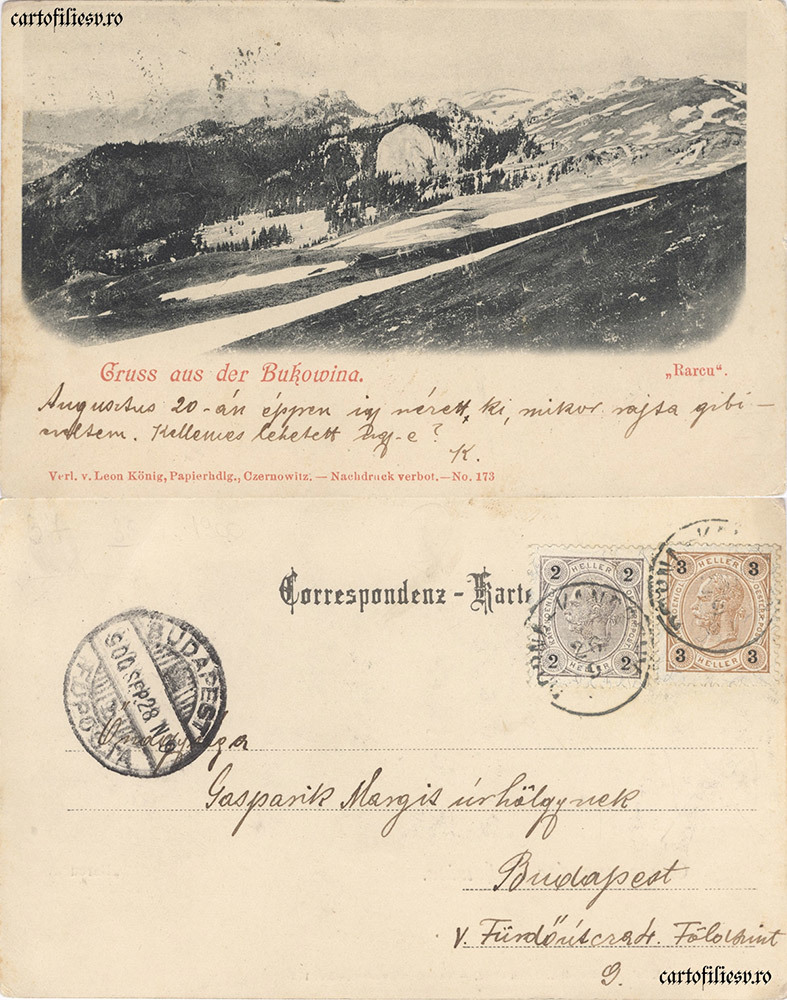 cartofiliesv.ro
Gruss aus der Bukowina.
„Rarcu“.
Augusztus 20-án éppen így nézett ki, mikor rajta gibi-
Kellemes lehetett ugy-e?
K.
Verl. v. Leon König, Papierhdlg., Czernowitz. — Nachdruck verbot. — No. 173
Correspondenz-Karte
2 HELLER 2
2 HELLER 2
3 HELLER 3
3 HELLER 3
BUDAPEST
900 SEP. 28 N
FŐPOSTA
Gasparik Margit úrhölgynek
Budapest
V. Fürdő utcza 4. Földszint
9.
cartofiliesv.ro